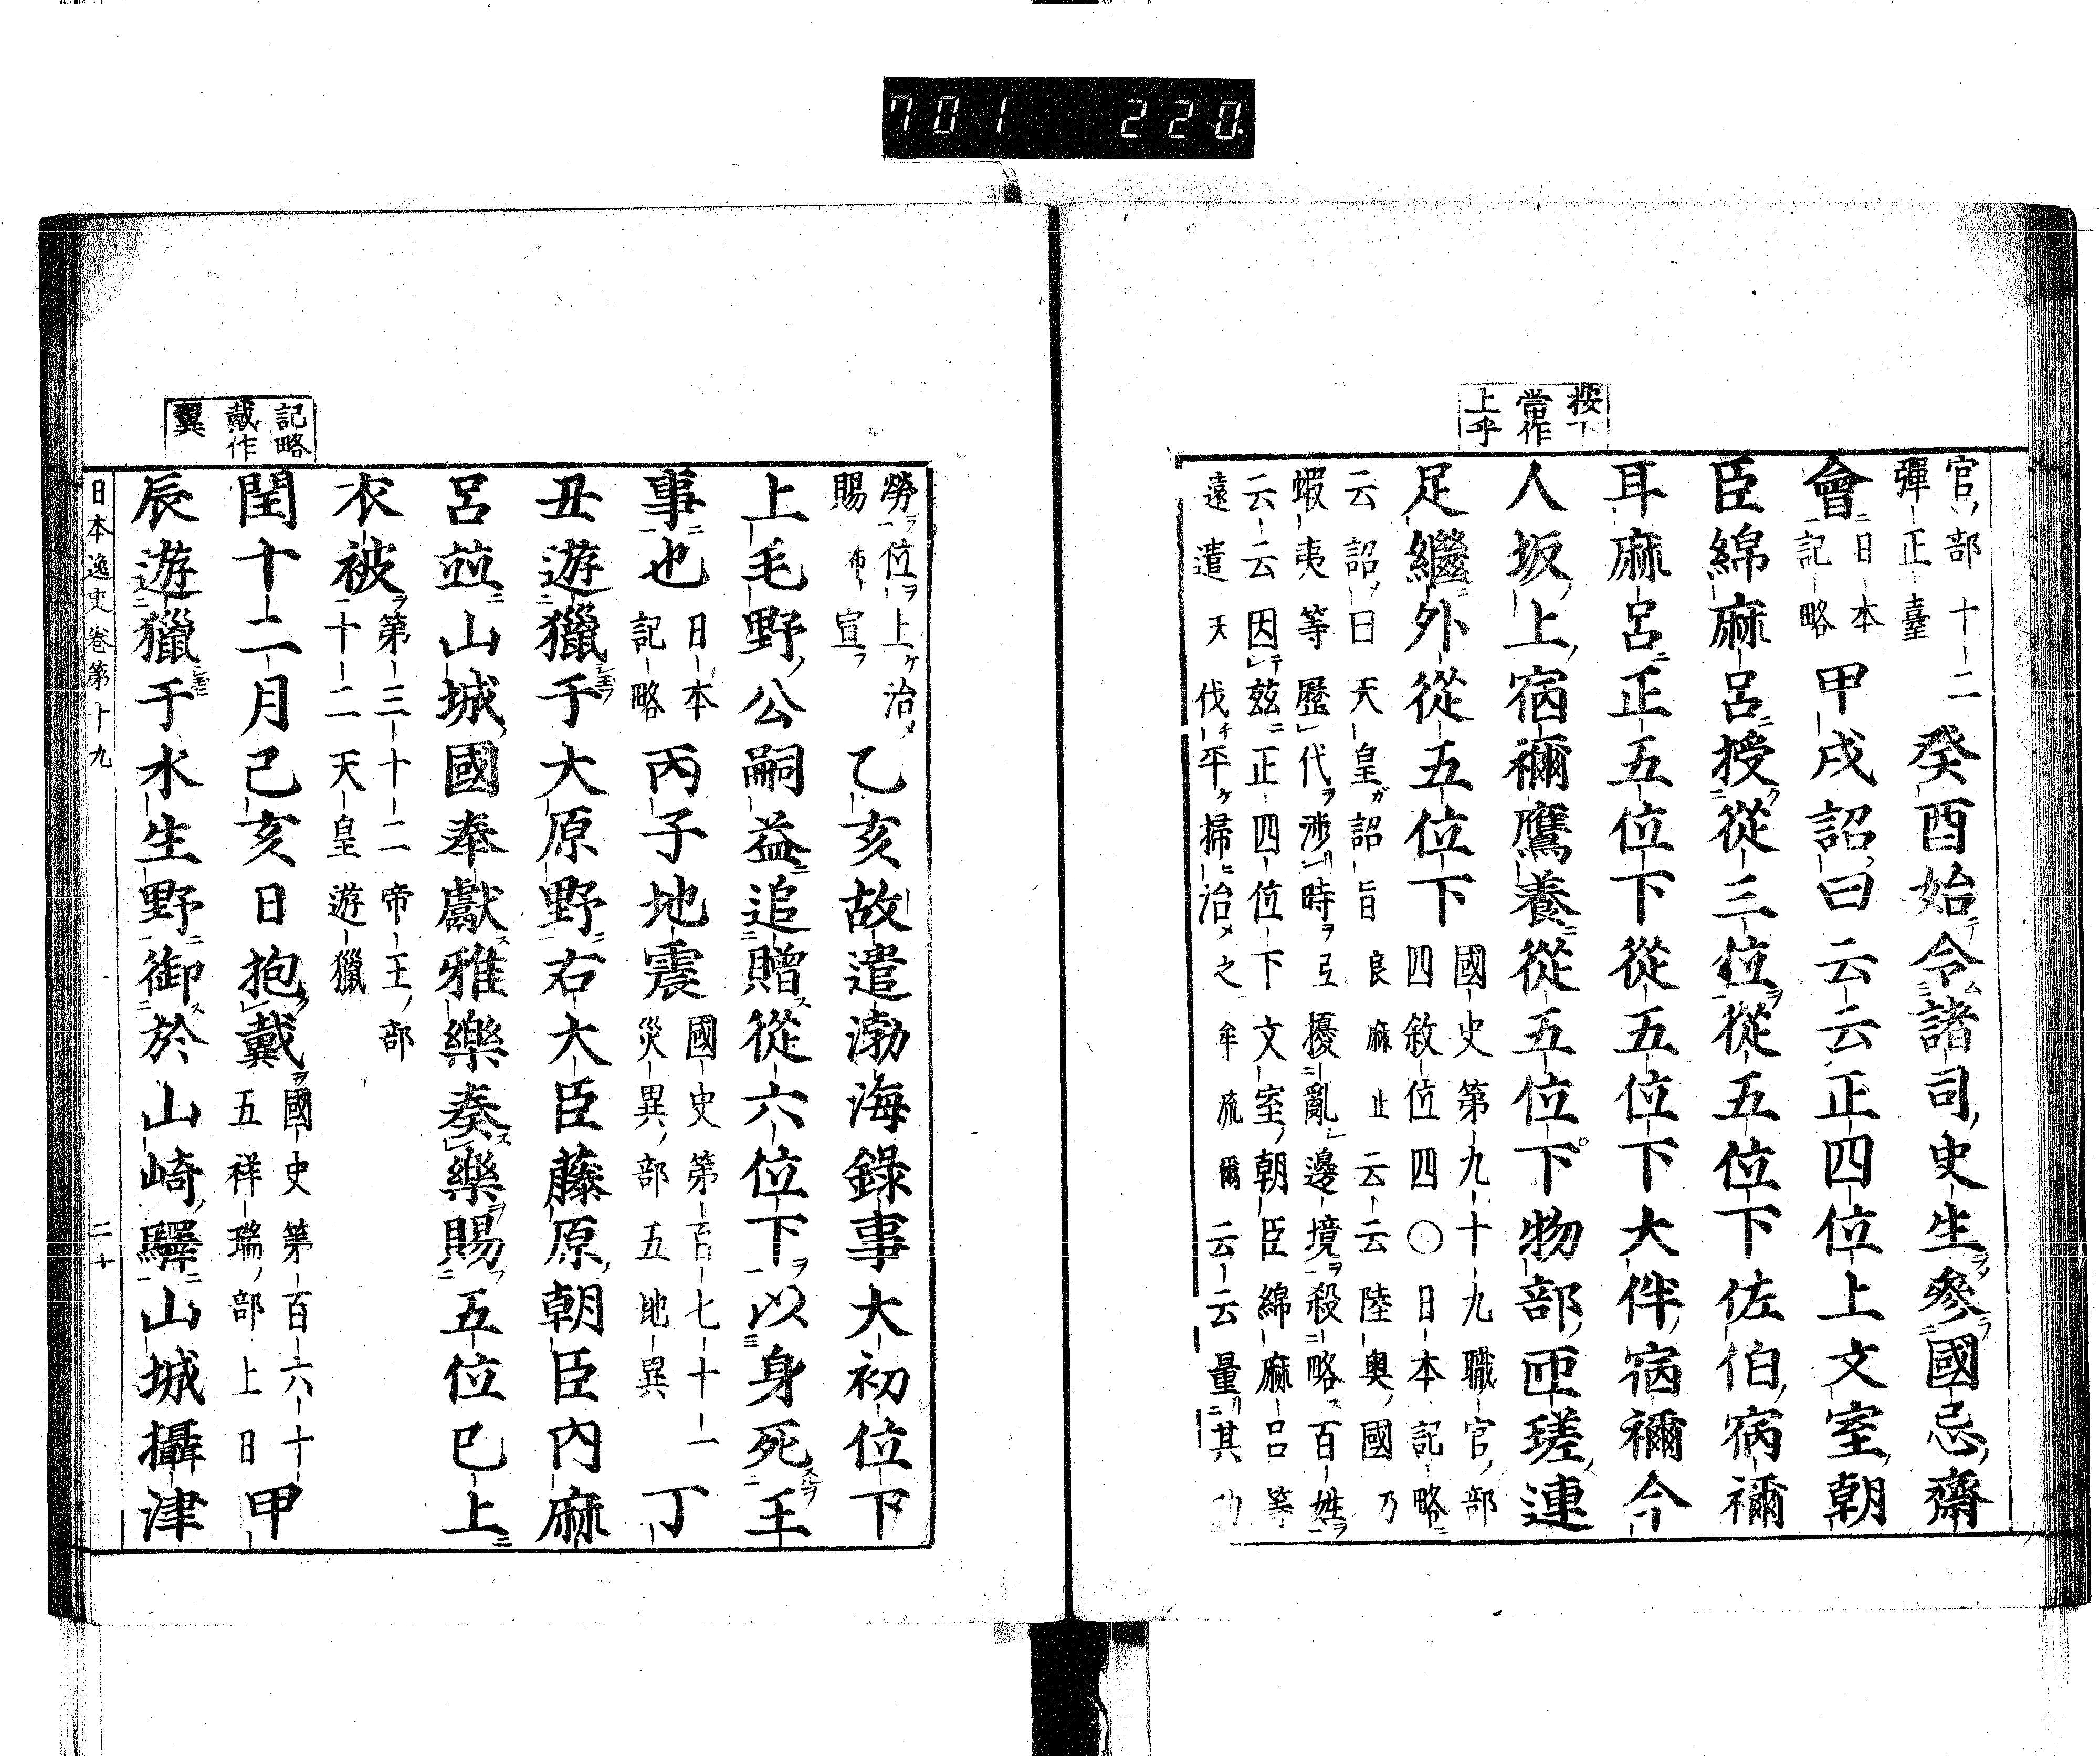 701 220
按下
當作
上乎
官部十二
彈正臺
癸酉始令諸司史生參國忌齋
會日本
記略
甲戌詔曰云云正四位上文室朝
臣綿麻呂授從三位從五位下佐伯宿禰
耳麻呂正五位下從五位下大伴宿禰今
人坂上宿禰鷹養從五位下物部匝瑳連
足繼外從五位下國史第九十九職官部
四敘位四○日本記略
云詔曰天皇詔旨良麻止云云陸奧國乃
蝦夷等歷代涉時弖擾亂邊境殺略百姓
云云因茲正四位下文室朝臣綿麻呂等
遠遣天伐平掃治之牟流爾云云量其功
勞位上治
賜布宣
乙亥故遣渤海錄事大初位下
上毛野公嗣益追贈從六位下以身死王
事也日本
記略
丙子地震國史第百七十一
災異部五地異
丁
丑遊獵于大原野右大臣藤原朝臣內麻
呂並山城國奉獻雅樂奏樂賜五位已上
衣被第三十二帝王部
十二天皇遊獵
閏十二月己亥日抱戴國史第百六十
五祥瑞部上日
甲
辰遊獵于水生野御於山崎驛山城攝津
記略
戴作
翼
日本逸史卷第十九 二十